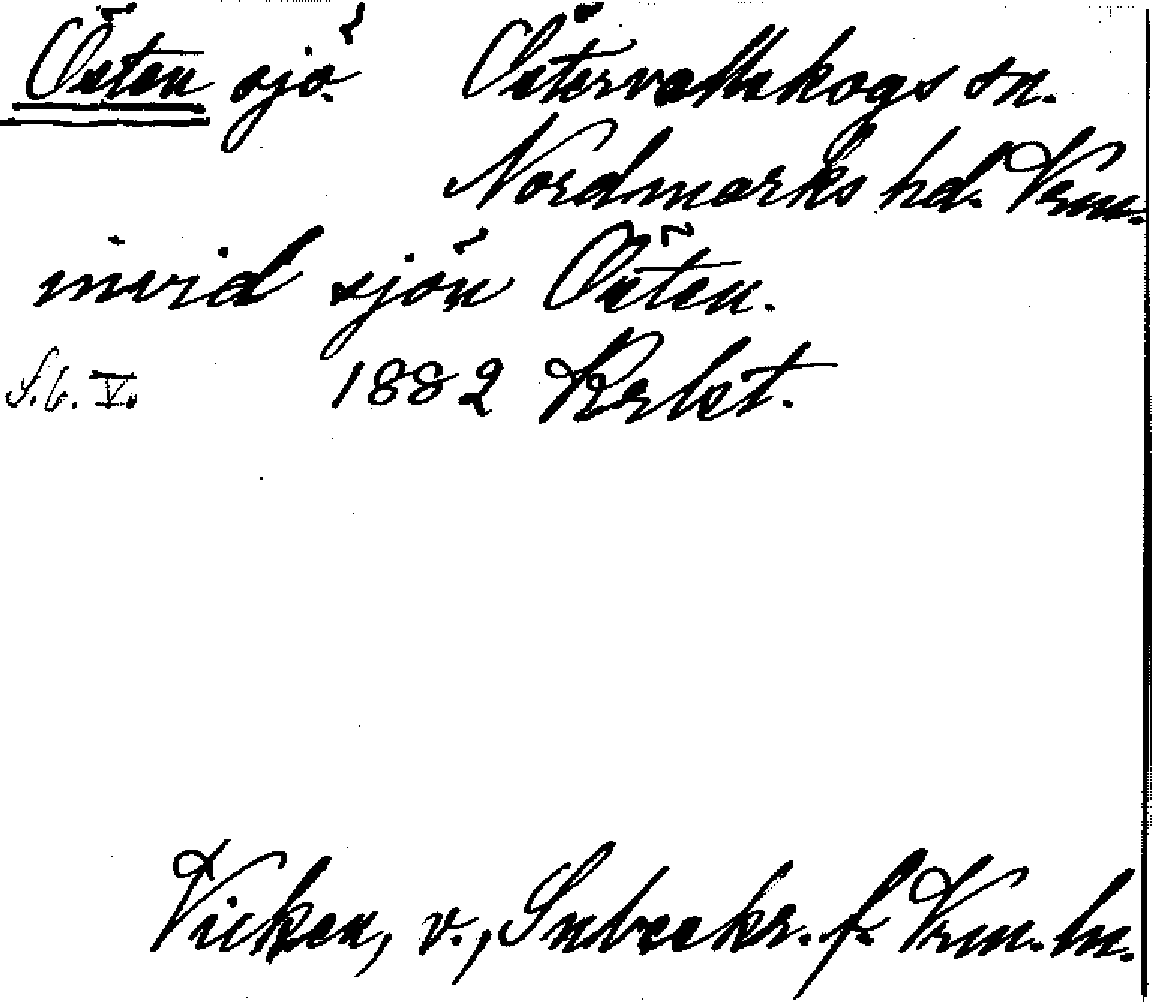 Östen sjö. Östervallskogs sn.
Nordmarks hd. Vrm.
invid sjön Östen.
S.b. V. 1882 Krlst.
Vicken, v., Snbeskr. f. Vrm. ln.